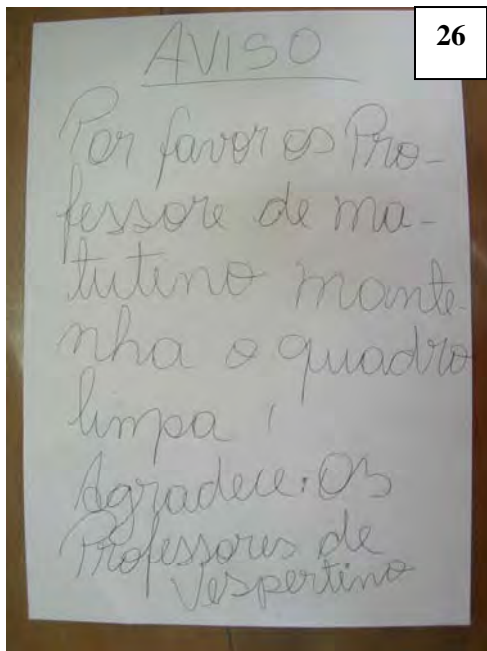 26
AVISO
Por favor os Pro-
fessore de ma-
tutino mante-
nha o quadro
limpa,
Agradece: Os
Professores de
Vespertino